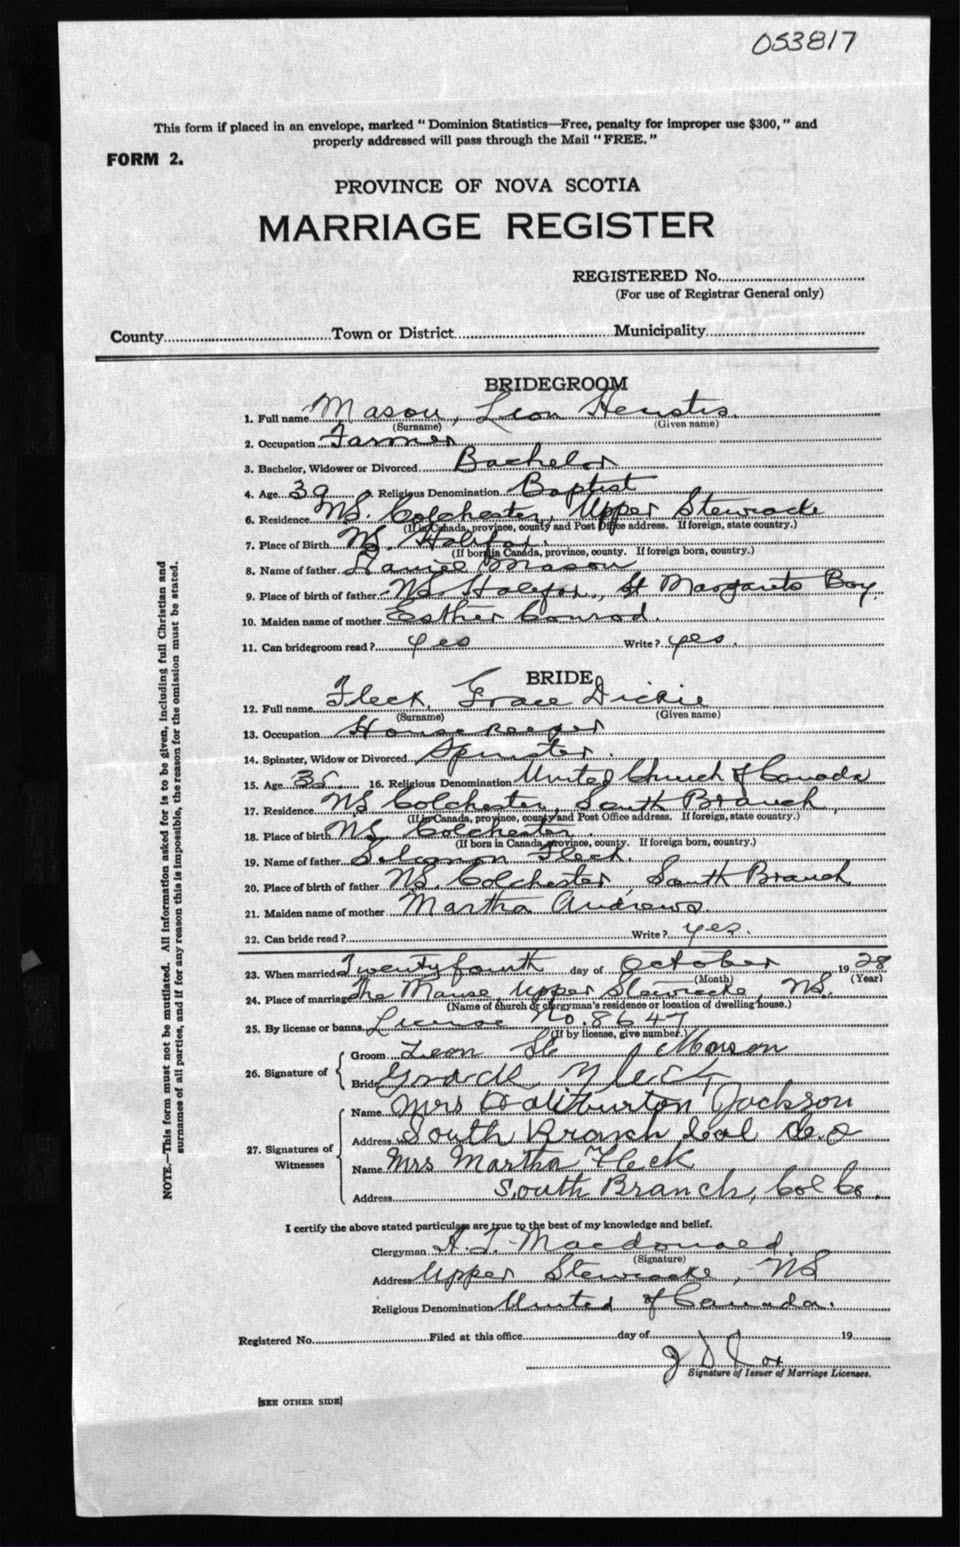 053817
This form if placed in an envelope, marked "Dominion Statistics—Free, penalty for improper use $300," and
properly addressed will pass through the Mail "FREE."
FORM 2.
PROVINCE OF NOVA SCOTIA
MARRIAGE REGISTER
REGISTERED No.
(For use of Registrar General only)
County Town or District Municipality
BRIDEGROOM
1. Full name Mason, Leon Heustis
(Surname) (Given name)
2. Occupation Farmer
3. Bachelor, Widower or Divorced Bachelor
4. Age 39 Religious Denomination Baptist
6. Residence NS. Colchester, Upper Stewiacke
(If in Canada, province, county and Post Office address. If foreign, state country.)
7. Place of Birth NS Halifax.
(If born in Canada, province, county. If foreign born, country.)
8. Name of father Daniel Mason
9. Place of birth of father NS Halifax, St Margarets Bay.
10. Maiden name of mother Esther Conrod.
11. Can bridegroom read? yes Write? yes.
BRIDE
12. Full name Fleck, Grace Dickie
(Surname) (Given name)
13. Occupation Housekeeper
14. Spinster, Widow or Divorced Spinster.
15. Age 35 16. Religious Denomination United Church of Canada
17. Residence NS Colchester, South Branch,
(If in Canada, province, county and Post Office address. If foreign, state country.)
18. Place of birth NS Colchester.
(If born in Canada, province, county. If foreign born, country.)
19. Name of father Solomon Fleck.
20. Place of birth of father NS. Colchester, South Branch
21. Maiden name of mother Martha Andrews.
22. Can bride read? Write? yes.
23. When married Twentyfourth day of October 1928
(Month) (Year)
24. Place of marriage The Manse, Upper Stewiacke, NS.
(Name of church or clergyman's residence or location of dwelling house.)
25. By license or banns License No. 8647
(If by license, give number.)
26. Signature of Groom Leon Mason
Bride Fleck
27. Signatures of Witnesses
Name Mrs Haliburton Jackson
Address South Branch Col Co
Name Mrs Martha Fleck
Address South Branch, Col Co.
I certify the above stated particulars are true to the best of my knowledge and belief.
Clergyman A. L. Macdonald.
(Signature)
Address Upper Stewiacke, NS
Religious Denomination United of Canada.
Registered No. Filed at this office day of 19
J D Cox
Signature of Issuer of Marriage Licenses.
[SEE OTHER SIDE]
NOTE.—This form must not be mutilated. All information asked for is to be given, including full Christian and
surnames of all parties, and if for any reason this is impossible, the reason for the omission must be stated.